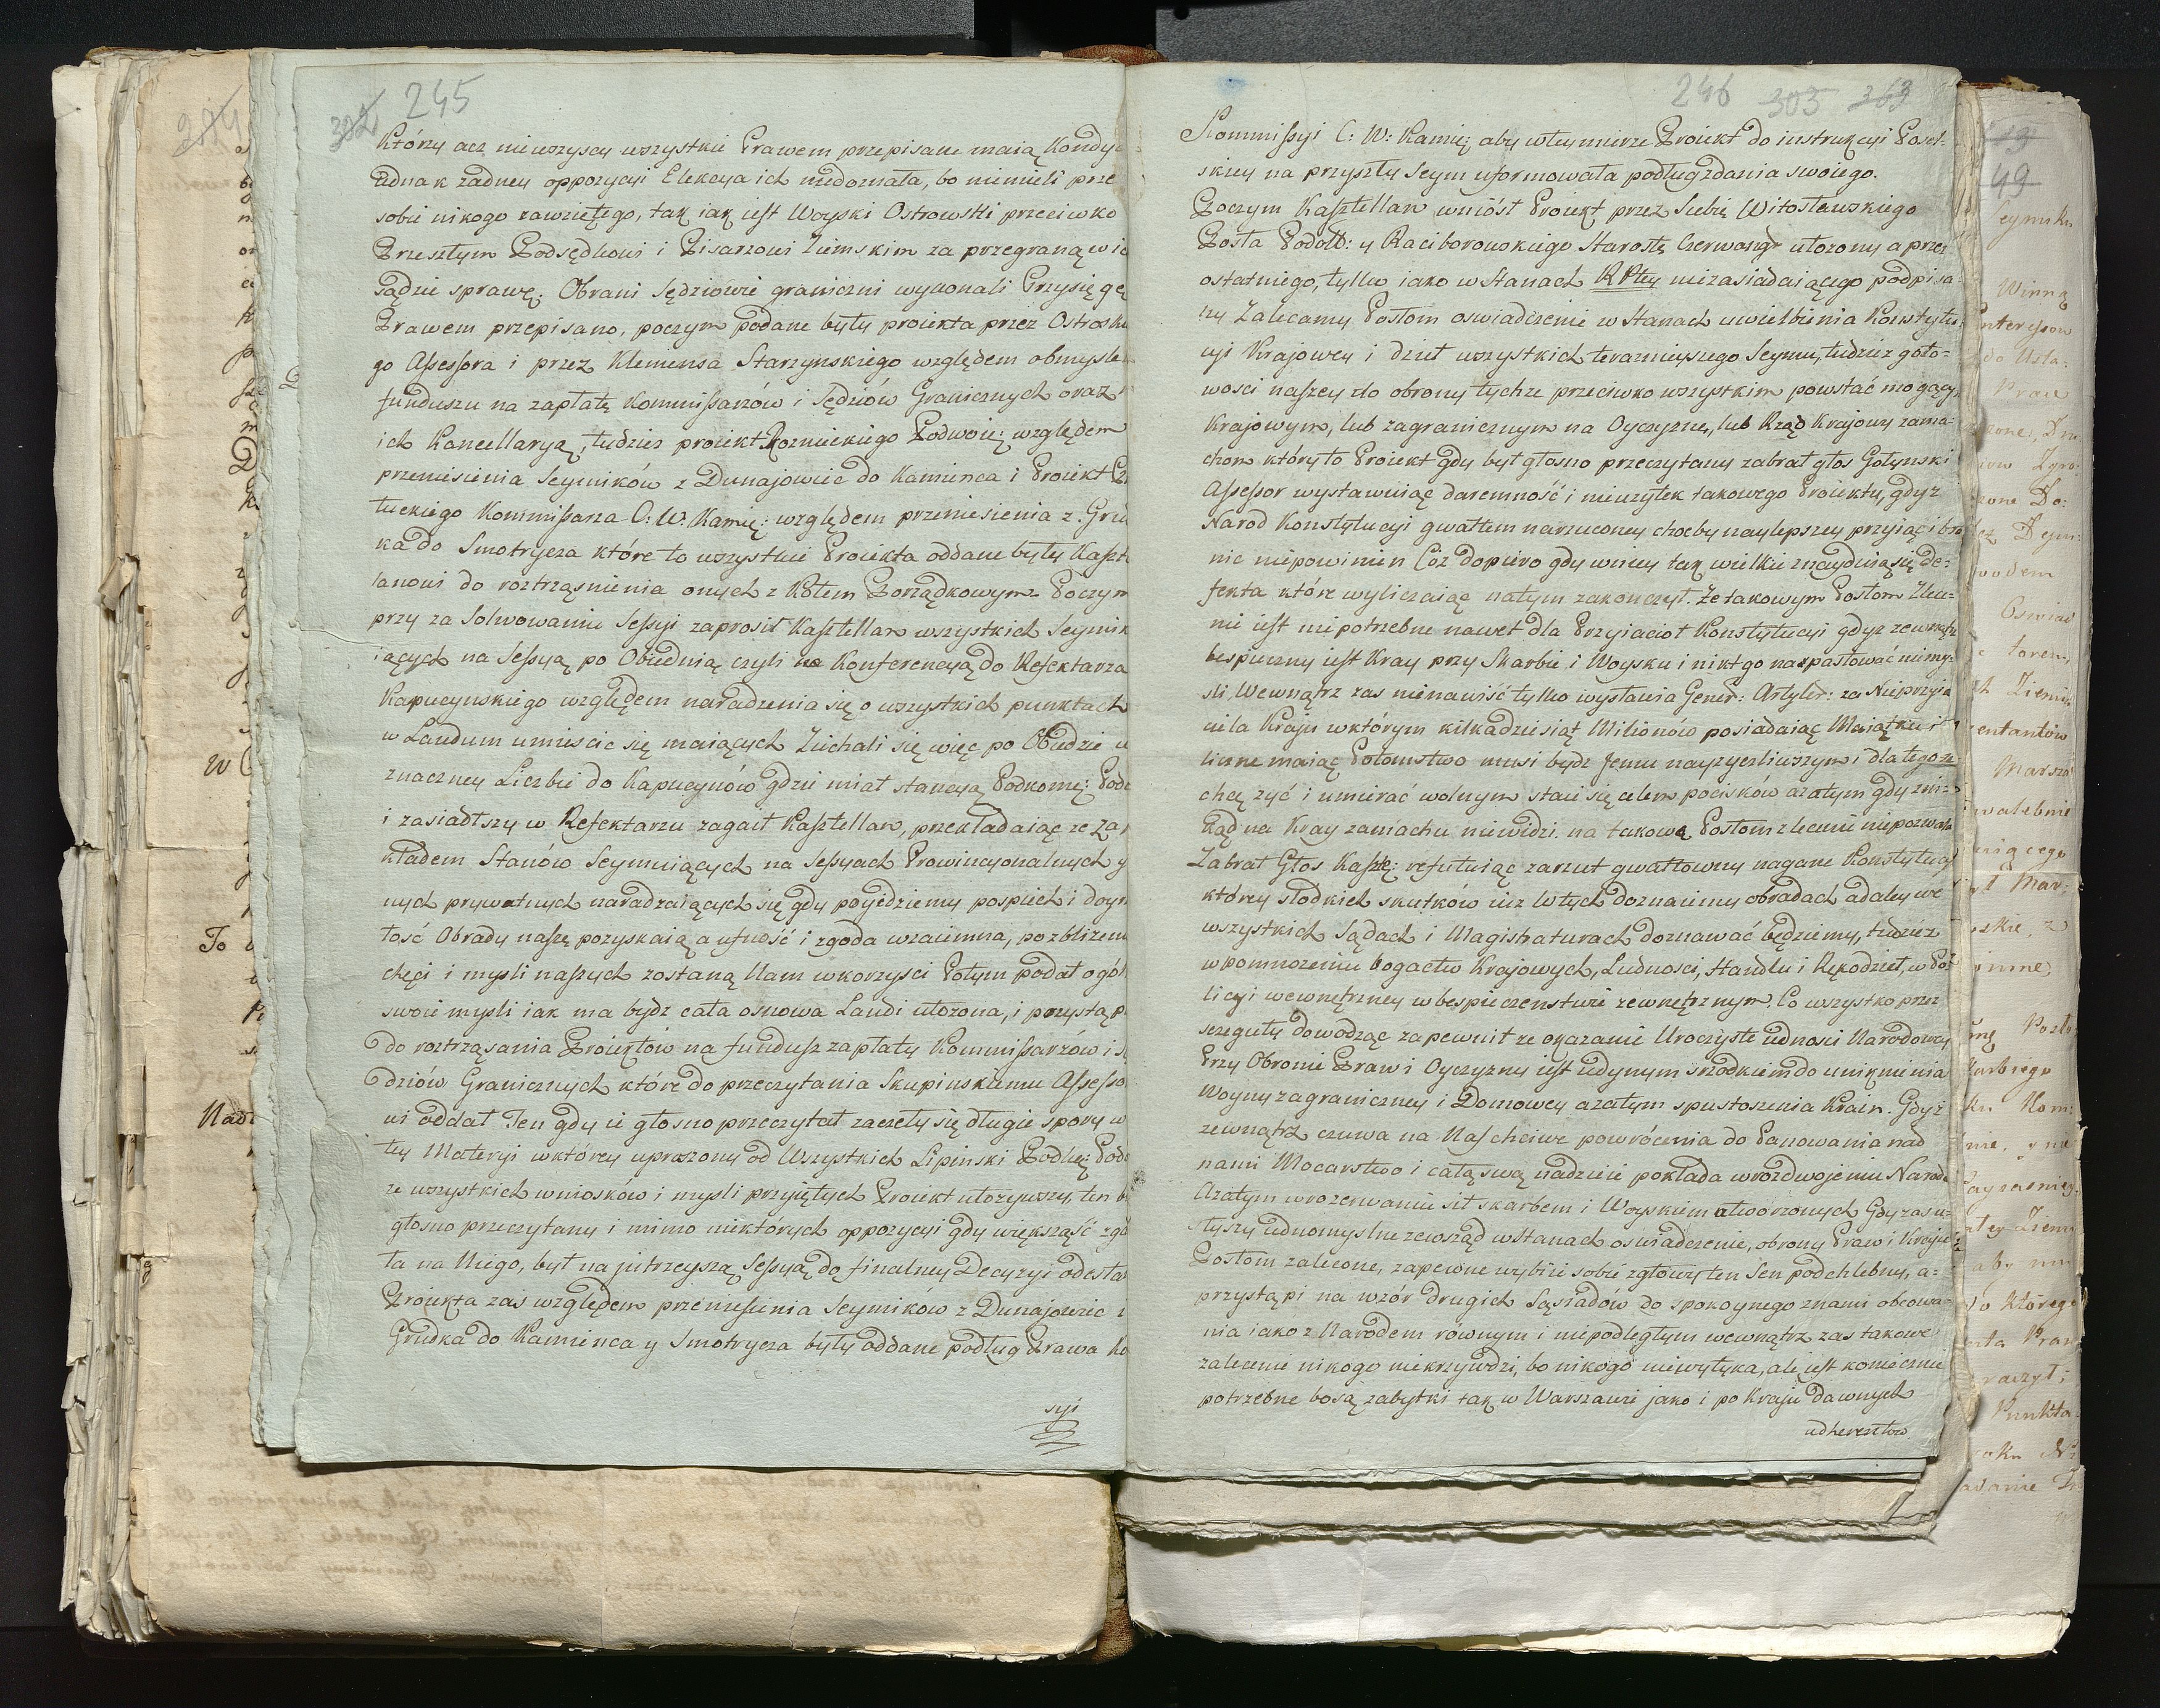 245
Którzy acz niewszyscy wszystkie Prawem przepisane maią Kondy
iednak zadney oppozycyi Elekcya ich niedoznała, bo niemieli prze
sobie nikogo zawziętego, tak iak iest Woyski Ostrowski przeciwko
Przeszłym Podsędkowi i Pisarzowi Ziemskim za przegraną w ic
sądzie sprawę. Obrani Sędziowie graniczni wykonali Przysięgę
Prawem przepisano, poczym podane były proiekta przez Ostrosk
go Assessora i przez Klemensa Starzynskiego względem obmysle
funduszu na zapłatę Kommissarzów i Sędziów Granicznych oraz
ich Kancellaryą, tudzież proiekt Roznieckiego Podwoie: względem
przeniesienia Seymików z Dunajowiec do Kamienca i Proiekt
tuckiego Kommissarza C: W: Kamie: względem przeniesienia z Gru
ka do Smotrycza które to wszystkie Proiekta oddane były Kaszt
lanowi do roztrząsnienia onych z Kołem Porządkowym Poczym
przy za Solwowaniu Sessyi zaprosił Kasztellan wszystkich Seymik
iących na Sessyą po Obiednią czyli na Konferencyą do Refektarza
Kapucynskiego względem naradzenia się o wszystkich punktach
w Laudum umiescic się maiących Ziechali się więc po Obiedzie w
znaczney Liczbie do Kapucynów gdzie miał stancyą Podkome: Podo
i zasiadłszy w Refektarzu zagaił Kasztellan, przekładaiąc ze za
kładem Stanów Seymuiących na Sessyach Prowincyonalnych y
nych prywatnych naradzaiących się gdy poydziemy pospiech i doyr
łość Obrady nasze pozyskaią a ufność i zgoda wzaiemna, po zbliżeni
chęci i mysli naszych zostaną Nam w korzysci Potym podał ogól
swoie mysli iak ma bydz cała osnowa Laudi ułozona, i przystąp
do roztrząsania Proiektów na fundusz zapłaty Kommissarzów i S
dziów Granicznych które do przeczytania Skupinskiemu Assesso
wi oddał Ten gdy ie głosno przeczytał zaczeły się długie spory w
tey Materyi w którey uproszony od Wszystkich Lipinski Podkę: Podo
ze wszystkich wniosków i mysli przyiętych Proiekt ułozywszy, ten b
głosno przeczytany i mimo niektórych oppozycyi gdy większość zgo
ła na Niego, był na jutrzeyszą Sessyą do finalney Decyzyi odesła
Proiekta zas względem przeniesienia Seymików z Dunajowiec i
Grudka do Kamienca y Smotrycza były oddane podług Prawa Ko
syi
246 303 363
Kommissyi C: W: Kamie: aby w tey mierze Proiekt do instrukcyi Posel-
skiey na przyszły Seym uformowała podług zdania swoiego.
Poczym Kasztellan wniósł Proiekt przez Siebie Witosławskiego
Posła Podoll: y Raciborowskiego Starostę Czerwonogr ułozony a przez
ostatniego, tylko iako w Stanach RPtey niezasiadaiącego podpisa-
ny Zalecamy Posłom oswiadczenie w Stanach uwielbienia Konstytu-
cyi Krajowey i dzieł wszystkich teraznieyszego Seymu, tudzież goto-
wosci naszey do obrony tychze przeciwko wszystkim powstać mogącym
Krajowym, lub zagranicznym na Oyczyznę, lub Rząd Krajowy zama-
chom który to Proiekt gdy był głosno przeczytany zabrał głos Gołynski
Assessor wystawuiąc daremność i nieuzytek takowego Proiektu, gdyz
Narod Konstytucyi gwałtem narzuconey choćby naylepszey przyiąć i bro
nic niepowinien Cóż dopiero gdy w niey tak wielkie znayduią się de-
fekta które wyliczaiąc natym zakonczył. Ze takowym Posłom Zlece-
nie iest niepotrzebne nawet dla Przyiacioł Konstytucyi gdyz zewnątrz
bespieczny iest Kray przy Skarbie i Woysku i nikt go naszpastować niemy-
sli. Wewnątrz zas nienawiść tylko wystawia Gener: Artyler: za Nieprzyia
ciela Kraju w którym kilkadziesiąt Milionów posiadaiąc Maiątku i
liczne maiąc Potomstwo musi bydz Jemu nayzyczliwszym i dlatego ze
chcę zyć i umierać wolnym staie się celem pocisków azatym gdy zni-
kąd na Kray zamachu niewidzi na takowe Posłom zlecenie niepozwala
Zabrał Głos Kaszte: refutuiąc zarzut gwałtowny nagane Konstytucyi
którey słodkich skutków iuz w tych doznaiemy obradach a daley we
wszystkich Sądach i Magistraturach doznawać będziemy, tudzież
w pomnozeniu bogactw Krajowych, Ludnosci, Handlu i Rękodzieł, w Pol-
licyi wewnętrzney w bespieczenstwie zewnętrznym. Co wszystko przez
szeguły dowodząc zapewnił ze okazanie Uroczyste iednosci Narodowey
Przy Obronie Praw i Oyczyzny iest iedynym srzodkiem do uniknienia
Woyny zagraniczney i Domowey azatym spustoszenia Krain. Gdyż
zewnątrz czuwa na Nas chciwe powrócenia do Panowania nad
nami Mocarstwo i całą swą nadzieię pokłada w rozdwojeniu Narodu
Azatym w rozerwaniu sił skarbem i Woyskiem utworzonych Gdy zas u-
słyszy iednomyslne zewsząd w Stanach oswiadczenie, obrony Praw i Kraju
Posłom zalecone, zapewne wybiie sobie z głowy ten Sen podchlebny, a-
przystąpi na wzór drugich Sąsiadów do spokoynego z nami obcowa-
nia iako z Narodem równym i niepodległym wewnątrz zas takowe
zalecenie nikogo nie krzywdzi, bo nikogo niewytyka, ale iest koniecznie
potrzebne bo są zabytki tak w Warszawie jako i po Kraju dawnych
adherentow
49